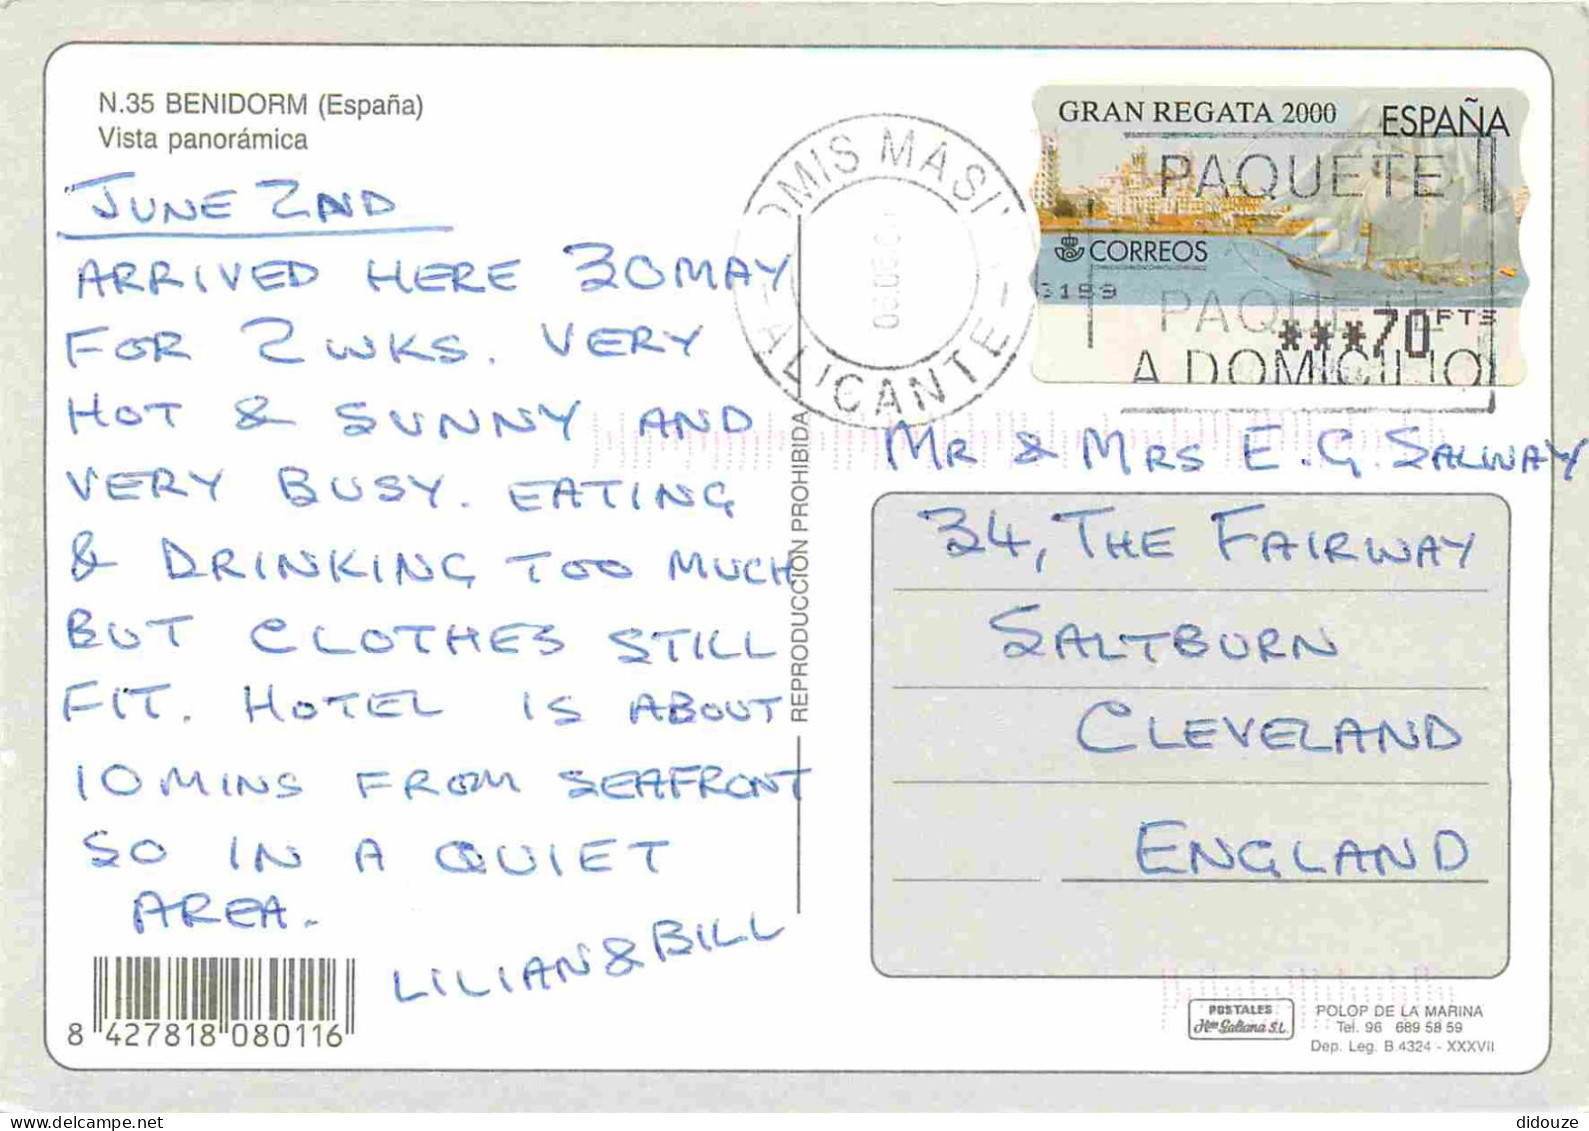 N.35 BENIDORM (España)
Vista panorámica
JUNE 2ND
ARRIVED HERE 30MAY
FOR 2 WKS. VERY
HOT & SUNNY AND
VERY BUSY. EATING
& DRINKING TOO MUCH
BUT CLOTHES STILL
FIT. HOTEL IS ABOUT
10 MINS FROM SEAFRONT
SO IN A QUIET
AREA.
LILIAN & BILL
8 427818 080116
REPRODUCCION PROHIBIDA
ALICANTE
GRAN REGATA 2000 ESPAÑA
PAQUETE
CORREOS
***70 PTS
A DOMICILIO
MR & MRS E. G. SALWAY
34, THE FAIRWAY
SALTBURN
CLEVELAND
ENGLAND
POSTALES
Hnos Galiana S.L.
POLOP DE LA MARINA
Tel. 96 689 58 59
Dep. Leg. B.4324 - XXXVII
didouze